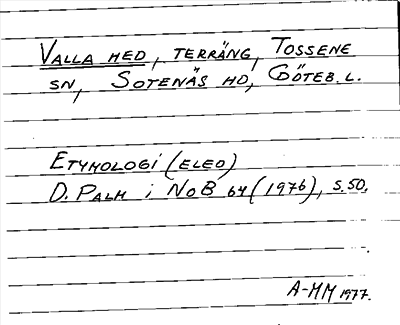 VALLA HED, TERRÄNG, TOSSENE
SN, SOTENÄS HD, GÖTEB. L.
ETYMOLOGI (ELED)
D. PALM i NoB 64 (1976), S.50.
A-MM 1977.